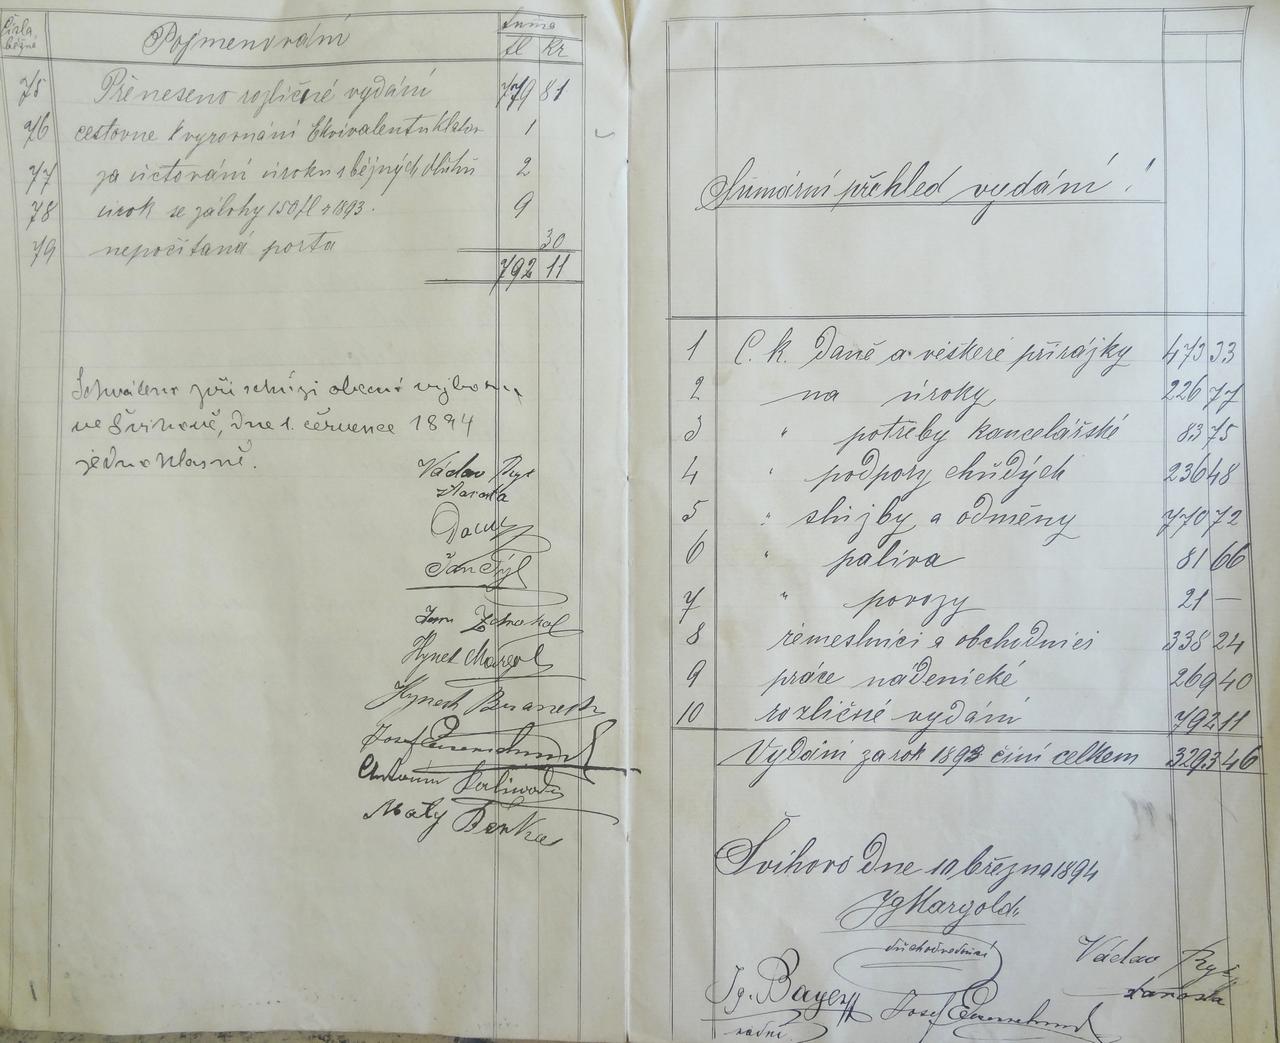 Čísla běžné Pojmenování Suma
zl kr
75 Přeneseno rozličné vydání 779 81
76 cestovne k vyrovnání Ekvivalentu Klatov 1
77 za účtování úroku s běžných dluhů 2
78 úrok se zálohy 150 fl r 1893. 9
79 nepočítaná porta 30
792 11
Schváleno při schůzi obecní výboru
ve Švihově, dne 1. července 1894
jednohlasně.
Václav Ryt
starosta
Jan Týl
Jan
Hynek
Hynek
Josef
Antonín Kaliwoda
Matěj
Sumární přehled vydání!
1 C. k. Daně a veškeré přirážky 473 33
2 na úroky 226 77
3 " potřeby kancelářské 83 75
4 " podpory chudých 236 48
5 " služby a odměny 770 72
6 " paliva 81 66
7 " povozy 21 —
8 řemeslníci a obchodníci 338 24
9 práce nádenické 269 40
10 rozličné vydání 792 11
Vydání za rok 1893 činí celkem 3293 46
Švihov Dne 10 března 1894
Jg Margold
důchodvedoucí
Václav Ryt
starosta
Ig. Bayer
radní
Josef